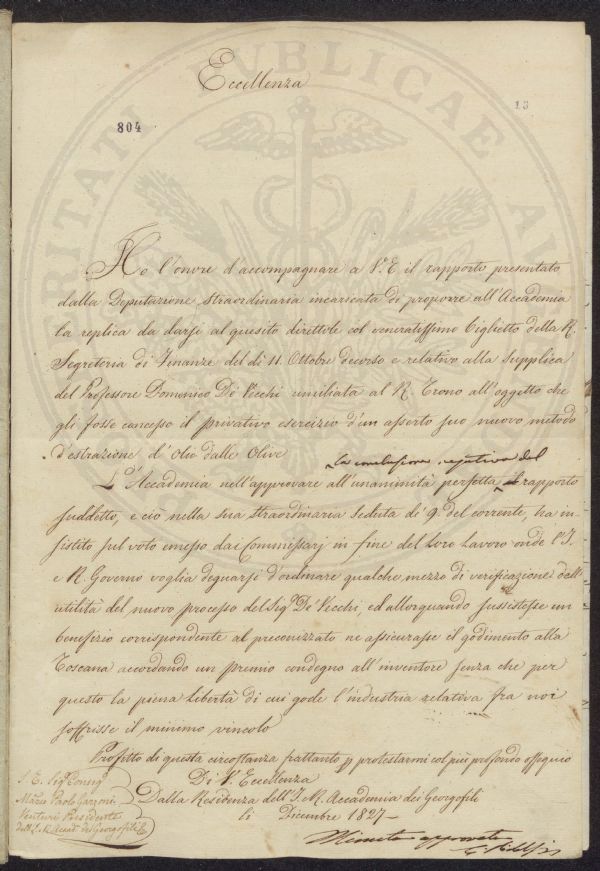 PUBLICAE
Eccellenza
13
804
Ho l'onore d'accompagnare a V. E. il rapporto presentato
dalla Deputazione straordinaria incaricata di proporre all'Accademia
la replica da darsi al quesito direttole col veneratissimo biglietto della R.
Segreteria di Finanze del dì 11. Ottobre decorso e relativo alla supplica
del Professore Domenico De' Vecchi umiliata al R. Trono all'oggetto che
gli fosse concesso il privativo esercizio d'un asserto suo nuovo metodo
d'estrazione d'olio dalle Olive
la conclusione rejetiva del
L'Accademia nell'approvare all'unanimità perfetta il rapporto
suddetto, e ciò nella sua straordinaria seduta de' 9. del corrente, ha in-
sistito sul voto emesso dai Commissarj in fine del loro lavoro onde l'I.
e R. Governo voglia degnarsi d'ordinare qualche mezzo di verificazione dell'
utilità del nuovo processo del Sig. De' Vecchi, ed allorquando sussistesse un
benefizio corrispondente al preconizzato ne assicurasse il godimento alla
Toscana accordando un premio condegno all'inventore senza che per
questo la piena libertà di cui gode l'industria relativa fra noi
soffrisse il minimo vincolo
Profitto di questa circostanza frattanto p protestarmi col più profondo ossequio
Di V. Eccellenza
Dalla Residenza dell'I. R. Accademia dei Georgofili
li Dicembre 1827
S. E. Sig. Consig.
March. Paolo Garzoni
Venturi Presidente
dell'I. R. Accad. de' Georgofili
Minuta approvata